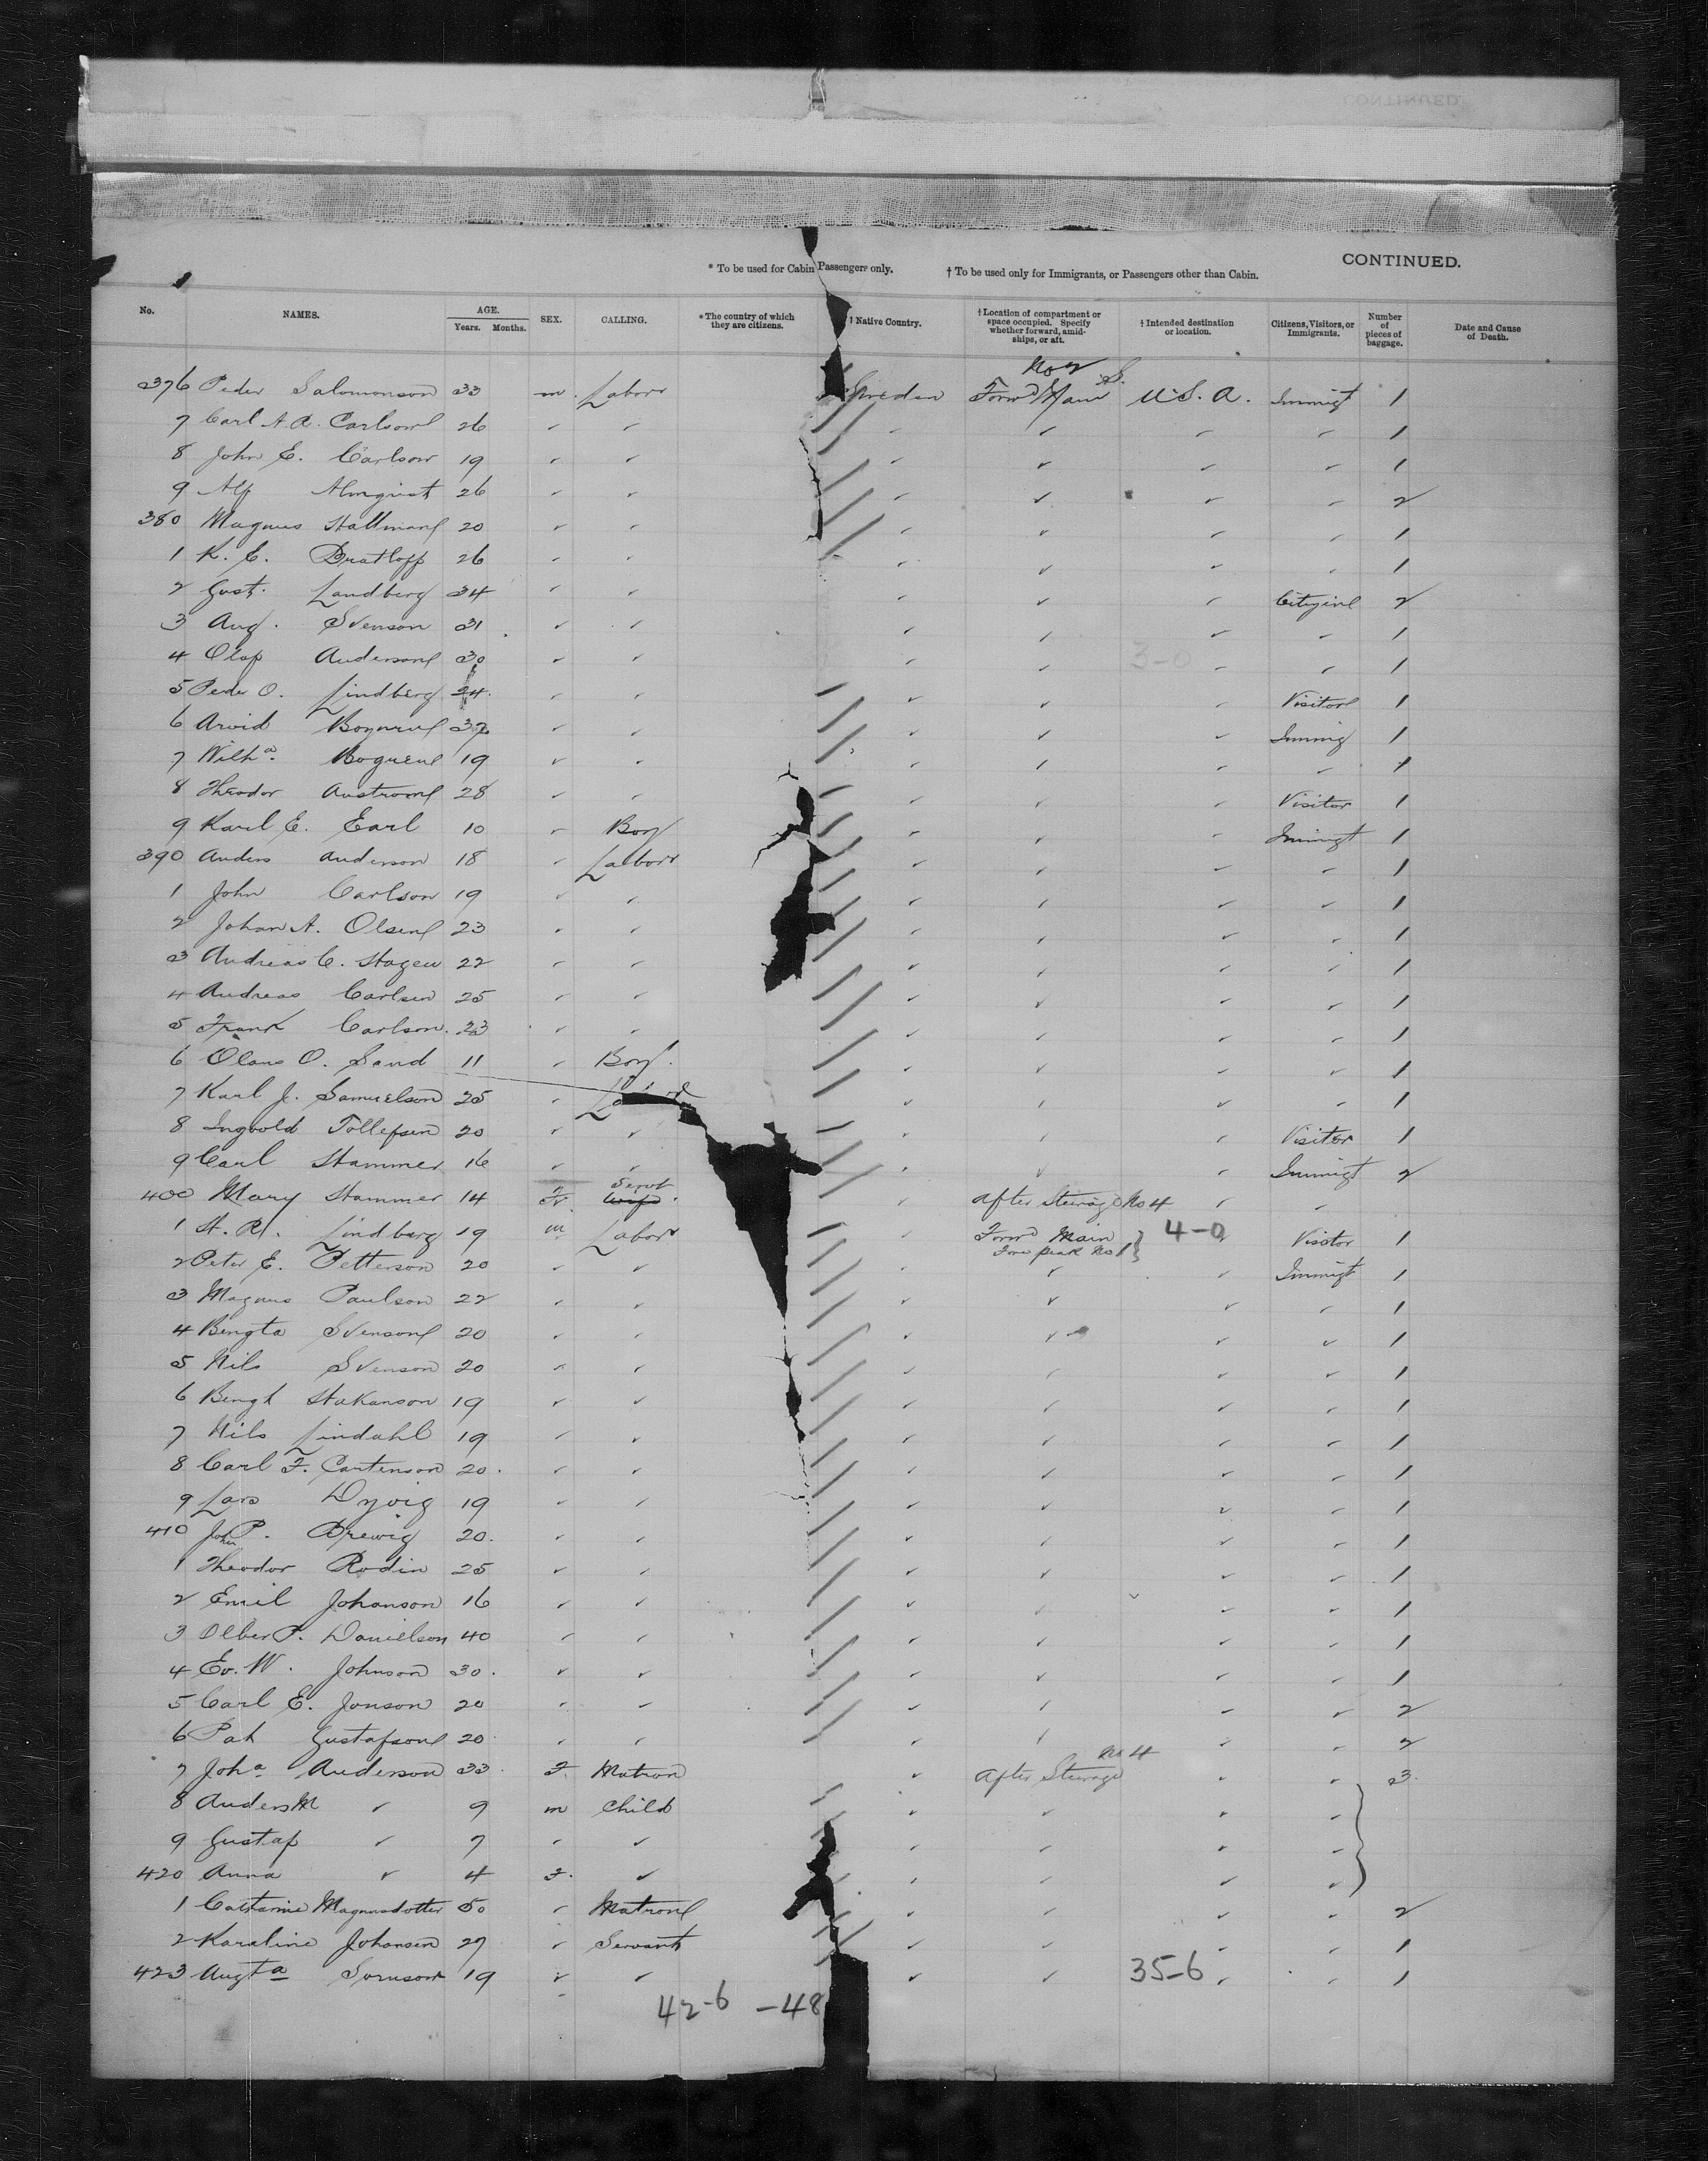 CONTINUED.
* To be used for Cabin Passengers only. † To be used only for Immigrants, or Passengers other than Cabin.
No. NAMES. AGE. Years. Months. SEX. CALLING. * The country of which they are citizens. † Native Country. † Location of compartment or space occupied. Specify whether forward, amidships, or aft. † Intended destination or location. Citizens, Visitors, or Immigrants. Number of pieces of baggage. Date and Cause of Death.
No 2
376 Peder Salomonson 33 m Labor Sweden Forwd Main S. U.S.A. Immigt 1
7 Carl A. A. Carlson 26 ✓ ✓ ✓ ✓ ✓ ✓ 1
8 John E. Carlson 19 ✓ ✓ ✓ ✓ ✓ ✓ 1
9 Alf Almquist 26 ✓ ✓ ✓ ✓ ✓ ✓ 2
380 Magnus Hallman 20 ✓ ✓ ✓ ✓ ✓ ✓ 1
1 K. E. 26 ✓ ✓ ✓ ✓ ✓ ✓ 1
2 Gust. Landberg 34 ✓ ✓ ✓ ✓ ✓ Citizen 2
3 Aug. Svenson 31 ✓ ✓ ✓ ✓ ✓ ✓ 1
4 Olof Anderson 30 ✓ ✓ ✓ ✓ 3-0 ✓ ✓ 1
5 Peder O. Lindberg 24 ✓ ✓ ✓ ✓ ✓ Visitor 1
6 Arvid 32 ✓ ✓ ✓ ✓ ✓ Immig 1
7 Wilha. 19 ✓ ✓ ✓ ✓ ✓ ✓ 1
8 Theodor Austrom 28 ✓ ✓ ✓ ✓ ✓ Visitor 1
9 Karl E. Earl 10 ✓ Boy ✓ ✓ ✓ Immigt 1
390 Anders Anderson 18 ✓ Labor ✓ ✓ ✓ ✓ 1
1 John Carlson 19 ✓ ✓ ✓ ✓ ✓ ✓ 1
2 Johan A. Olsen 23 ✓ ✓ ✓ ✓ ✓ ✓ 1
3 Andreas C. Hagen 22 ✓ ✓ ✓ ✓ ✓ ✓ 1
4 Andreas Carlsen 25 ✓ ✓ ✓ ✓ ✓ ✓ 1
5 Frank Carlson. 23 ✓ ✓ ✓ ✓ ✓ ✓ 1
6 Olans O. Sand 11 ✓ Boy ✓ ✓ ✓ ✓ 1
7 Karl J. Samuelson 25 ✓ ✓ ✓ ✓ ✓ 1
8 Ingvold Tollefsen 20 ✓ ✓ ✓ ✓ ✓ Visitor 1
9 Carl Hammer 16 ✓ ✓ ✓ ✓ ✓ Immigt 2
400 Mary Hammer 14 F Servt ✓ After Steerage No 4 ✓ ✓
1 H. R. Lindberg 19 m Labor ✓ Forwd Main Fore peak No 1 } 4-0 ✓ Visitor 1
2 Peter E. Petterson 20 ✓ ✓ ✓ ✓ Immigt 1
3 Magnus Paulson 22 ✓ ✓ ✓ ✓ ✓ ✓ 1
4 Bengta Svenson 20 ✓ ✓ ✓ ✓ ✓ ✓ 1
5 Nils Svenson 20 ✓ ✓ ✓ ✓ ✓ ✓ 1
6 Bengt Hakanson 19 ✓ ✓ ✓ ✓ ✓ ✓ 1
7 Nils Lindahl 19 ✓ ✓ ✓ ✓ ✓ ✓ 1
8 Carl F. Cartenson 20. ✓ ✓ ✓ ✓ ✓ ✓ 1
9 Lars Dyvig 19 ✓ ✓ ✓ ✓ ✓ ✓ 1
410 John P. Brewig 20. ✓ ✓ ✓ ✓ ✓ ✓ 1
1 Theodor Rodin 25 ✓ ✓ ✓ ✓ ✓ ✓ 1
2 Emil Johanson 16 ✓ ✓ ✓ ✓ ✓ ✓ 1
3 P. Danielson 40 ✓ ✓ ✓ ✓ ✓ ✓ 1
4 W. Johnson 30. ✓ ✓ ✓ ✓ ✓ ✓ 1
5 Carl E. Jonson 20 ✓ ✓ ✓ ✓ ✓ ✓ 2
6 Pat Gustafson 20 ✓ ✓ ✓ ✓ ✓ ✓ 2
7 Joha Anderson 33 F. Matron ✓ After Steerage No 4 ✓ ✓ 3
8 Anders M ✓ 9 m Child ✓ ✓ ✓ ✓
9 Gustaf ✓ 7 ✓ ✓ ✓ ✓ ✓ ✓
420 Anna ✓ 4 F. ✓ ✓ ✓ ✓ ✓
1 Catharine Magnusdotter 50 ✓ Matron ✓ ✓ ✓ ✓ 2
2 Karaline Johansen 27 ✓ Servant ✓ ✓ ✓ ✓ 1
423 Augta 19 ✓ ✓ ✓ ✓ 35-6 ✓ ✓ 1
42-6 -48